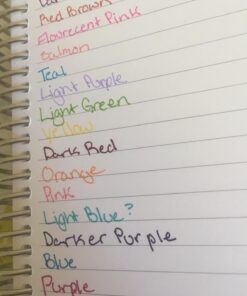 Red Brown
Flourecent Pink
Salmon
Teal
Light Purple
Light Green
Yellow
Dark Red
Orange
Pink
Light Blue?
Darker Purple
Blue
Purple